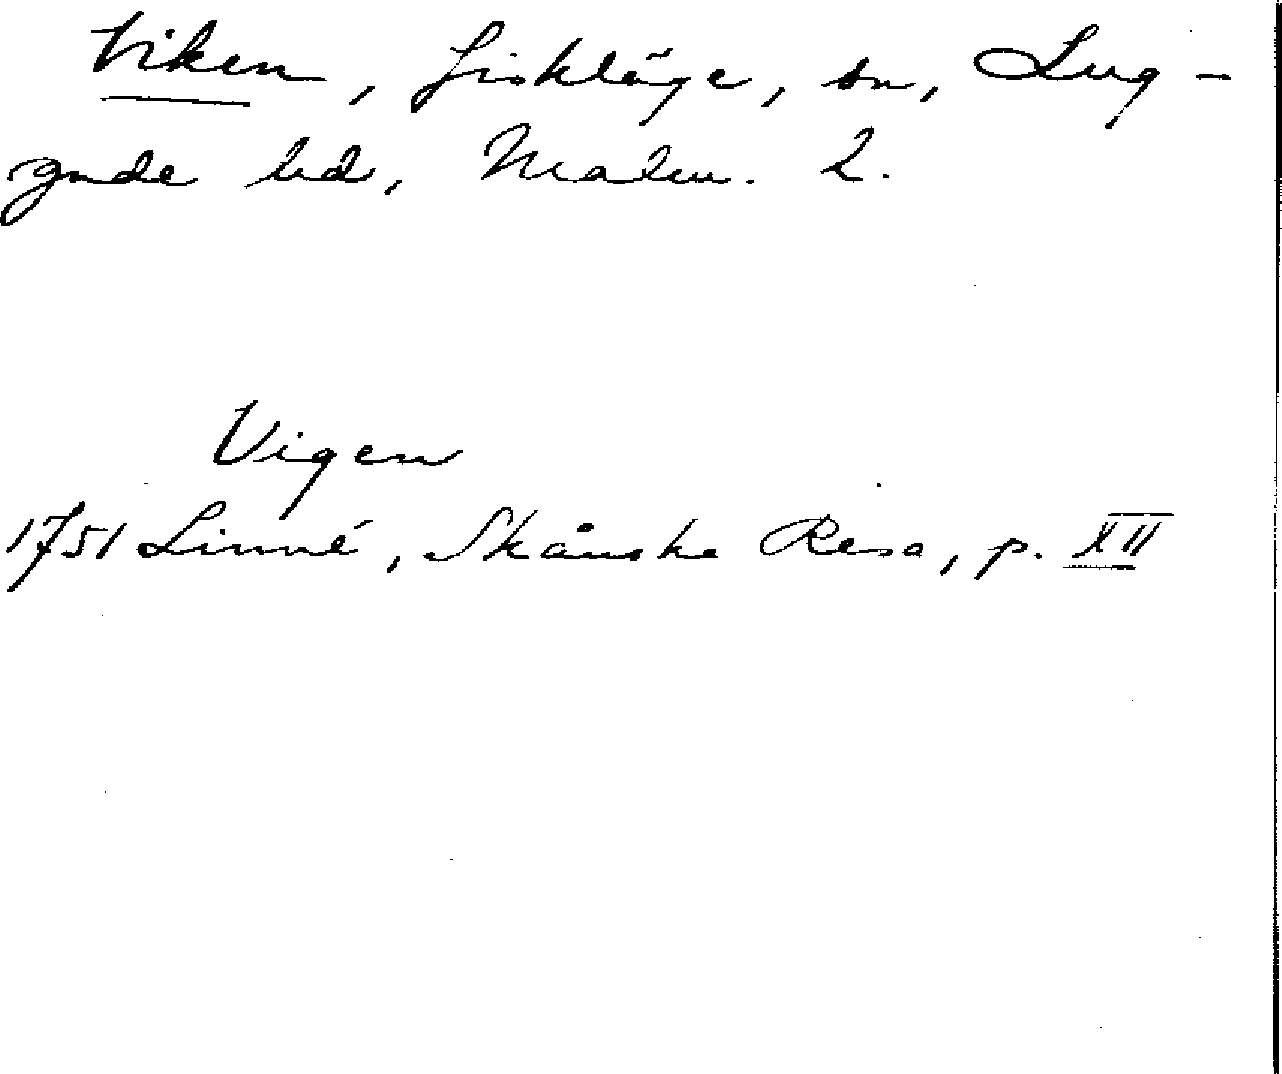 Viken, fiskläge, sn, Lug-
gude hd, Malm. L.
Vigen
1751 Linné, Skånska Resa, p. XII